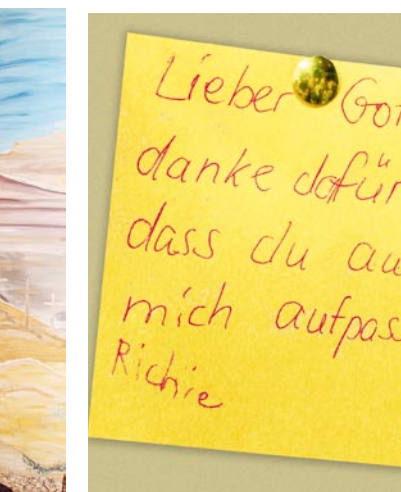 Lieber Got
danke dafür
dass du au
mich aufpass
Richie